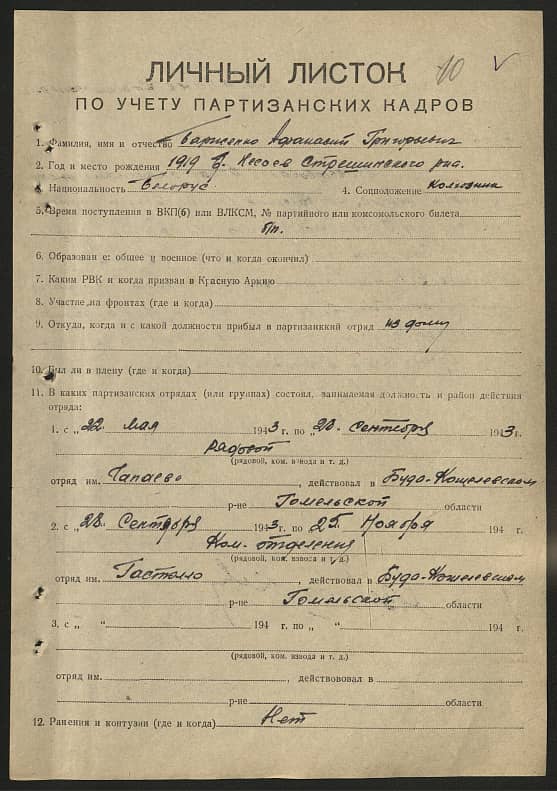 10 V
ЛИЧНЫЙ ЛИСТОК
ПО УЧЕТУ ПАРТИЗАНСКИХ КАДРОВ
1. Фамилия, имя и отчество Борисенко Афанасий Григорьевич
2. Год и место рождения 1919 Стрешинского р-на.
3. Национальность белорус 4. Соцположение колхозник
5. Время поступления в ВКП(б) или ВЛКСМ, № партийного или комсомольского билета
б/п.
6. Образован е: общее и военное (что и когда окончил)
7. Каким РВК и когда призван в Красную Армию
8. Участие на фронтах (где и когда)
9. Откуда, когда и с какой должности прибыл в партизанккий отряд из дому
10. Был ли в плену (где и когда)
11. В каких партизанских отрядах (или группах) состоял, занимаемая должность и район действия
отряда:
1. с „22. мая 1943 г. по „23. сентября 1943 г.
рядовой
(рядовой, ком. взвода и т. д.)
отряд им. Чапаева, действовал в Буда-Кошелевском
р-не Гомельской области
2. с „23. Сентября 1943 г. по 25. Ноября 194 г.
Ком. отделения
(рядовой, ком. взвоса и т. д.)
отряд им. Гастелло, действовал в Буда-Кошелевском
р-не Гомельской области
3. с „ “ 194 г. по „ “ 194 г.
(рядовой, ком. взвода и т. д.)
отряд им. , действововал в
р-не области
12. Ранения и контузии (где и когда) Нет